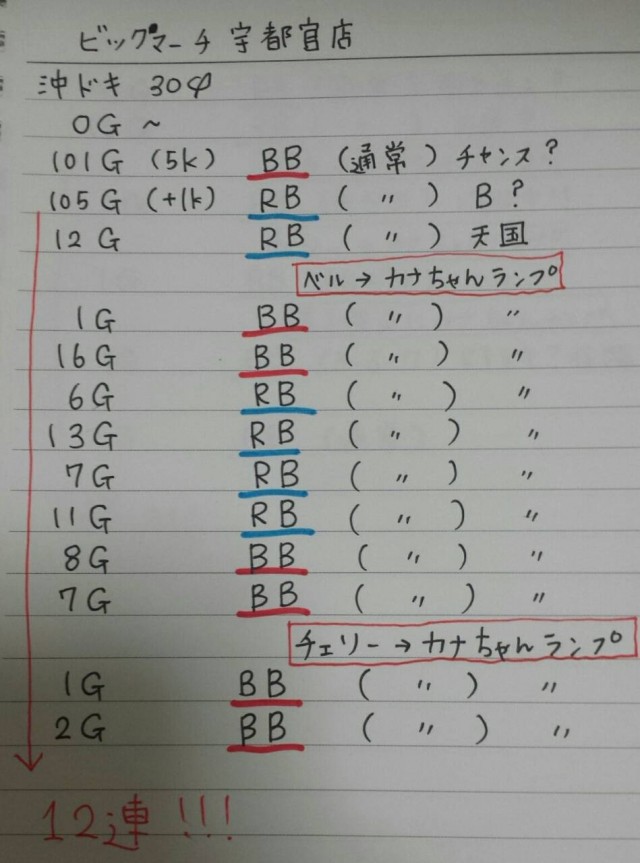 ビックマーチ 宇都宮店
沖ドキ 30φ
0G ~
101G (5k) BB (通常) チャンス?
105G (+1k) RB (〃) B?
12G RB (〃) 天国
ベル→カナちゃんランプ
1G BB (〃) 〃
16G BB (〃) 〃
6G RB (〃) 〃
13G RB (〃) 〃
7G RB (〃) 〃
11G RB (〃) 〃
8G BB (〃) 〃
7G BB (〃) 〃
チェリー→カナちゃんランプ
1G BB (〃) 〃
2G BB (〃) 〃
12連!!!